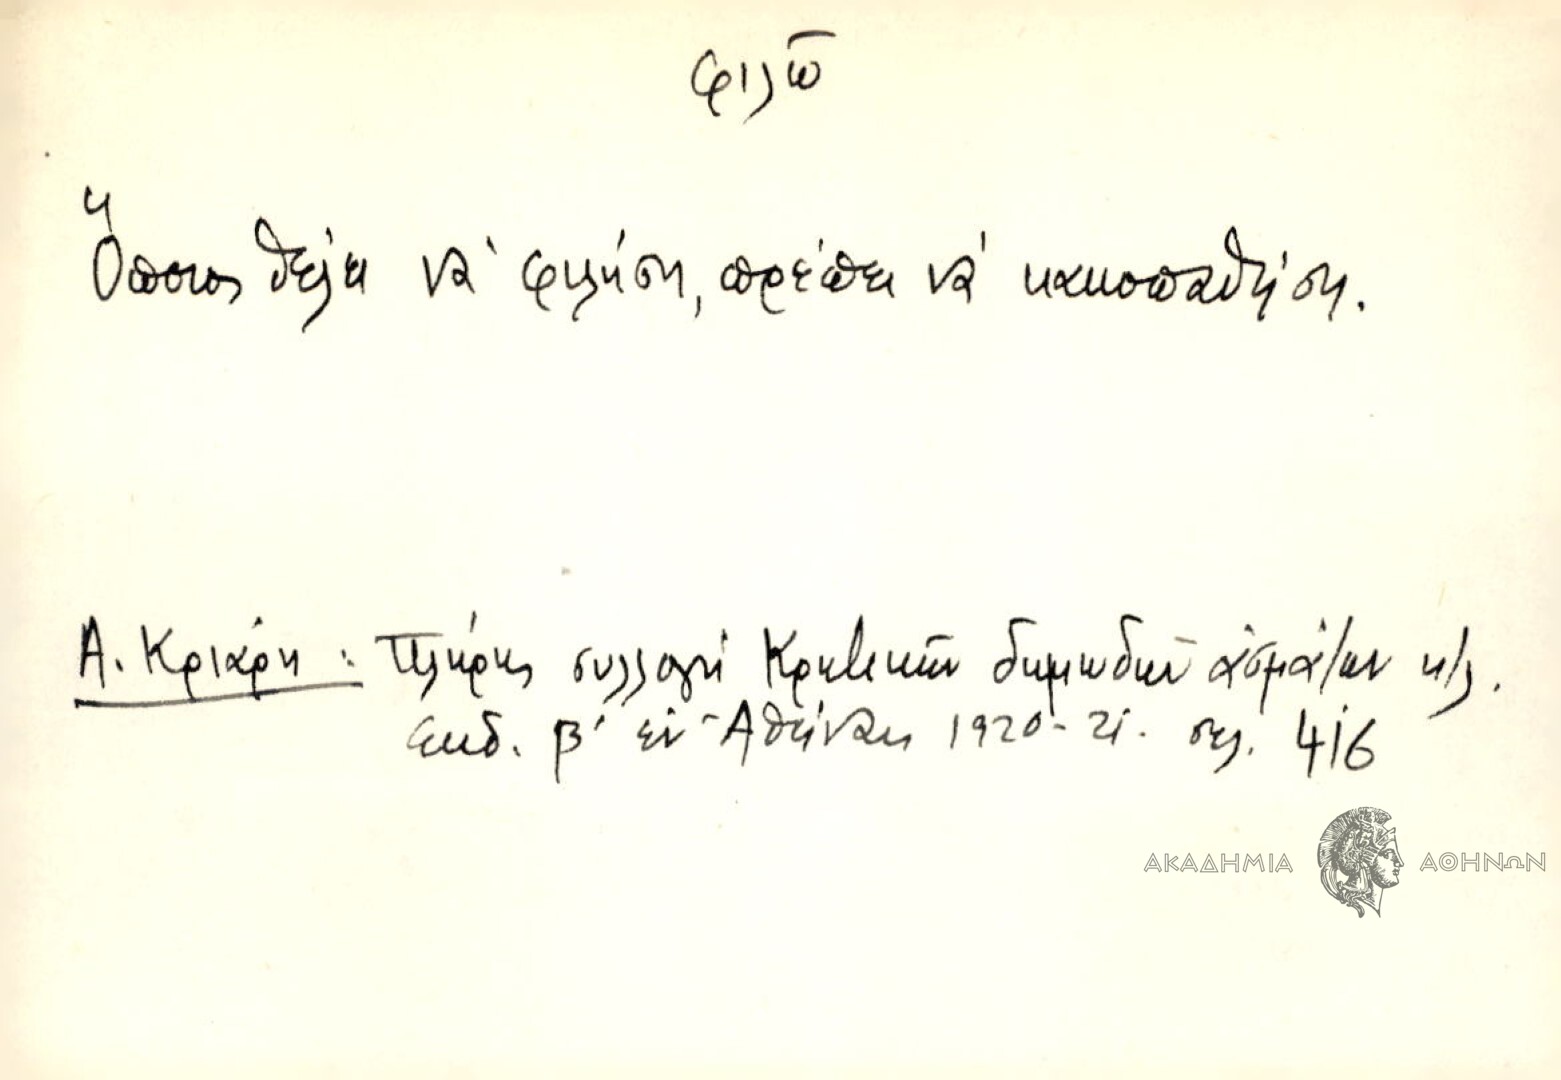 φιλῶ
Ὅποιος θέλει νὰ φιλήση, πρέπει νὰ κακοπαθήση.
Α. Κριάρη : Πλήρης συλλογή Κρητικῶν δημωδῶν ἀσμάτων κ/λ.
Εκδ. β' ἐν Ἀθήναις 1920-21. σελ. 416
ΑΚΑΔΗΜΙΑ ΑΘΗΝΩΝ